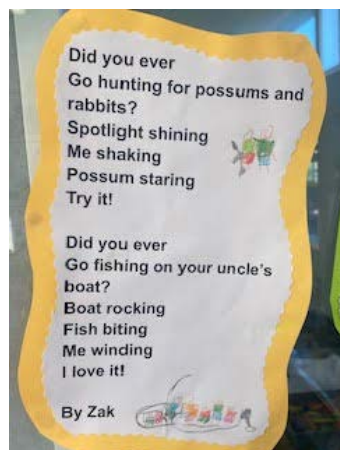 Did you ever
Go hunting for possums and
rabbits?
Spotlight shining
Me shaking
Possum staring
Try it!
Did you ever
Go fishing on your uncle's
boat?
Boat rocking
Fish biting
Me winding
I love it!
By Zak